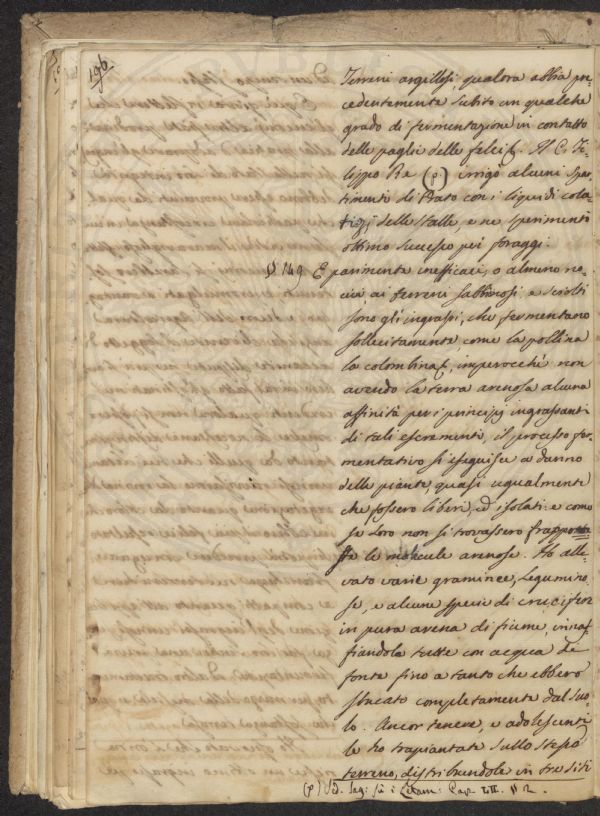 196
Terreni argillosi, qualora abbia pre-
cedentemente subito un qualche
grado di fermentazione in contatto
delle paglie delle felci &. Il C. Fi-
lippo Re (p) irrigò alcuni spar-
timenti di Prato con i liquidi cola-
tizj delle stalle, e ne sperimentò
ottimo successo pei foraggi.
§ 149 E parimente inefficace, o almeno no-
civa ai terreni sabbinosi, e sciolti
sono gl'ingrassi, che fermentano
sollecitamente, come la pollina
la colombina &, imperocchè non
avendo la terra arenosa alcuna
affinità per i principj ingrassanti
di tali escrementi, il processo fer-
mentativo si eseguisce a danno
delle piante, quasi egualmente
che fossero liberi, ed isolati: e come
se loro non si trovassero frappo-
ste le molecule arenose. Ho alle-
vato varie graminee, Legumino-
se, e alcune specie di crucifere
in pura arena di fiume, innaf-
fiandole tutte con acqua di
fonte fino a tanto che ebbero
sbucato completamente dal suo-
lo. Ancor tenere, e adolescenti
le ho trapiantate sullo stesso
terreno, distribuendole in tre siti
(p) Sag: su i Letam: Cap. § 2.